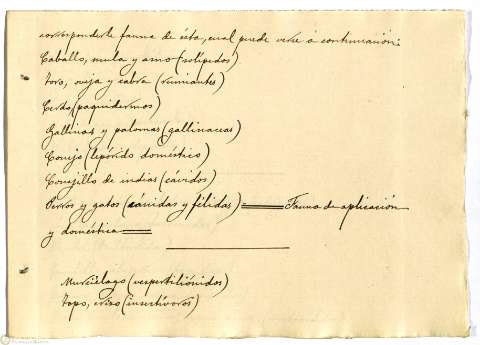 corresponderle fauna de ésta, cual puede verse á continuación:
Caballo, mula y asno (solípedos)
Toro, oveja y cabra (rumiantes)
Cerdo, (paquidermos)
Gallinas y palomas (gallinaceas)
Conejo (lepórido doméstico)
Conejillo de indias (cávidos)
Perros y gatos (cánidas y félidas) Fauna de aplicación
y doméstica
Murciélago (vespertiliónidos)
Topo, erizo (insectívoros)